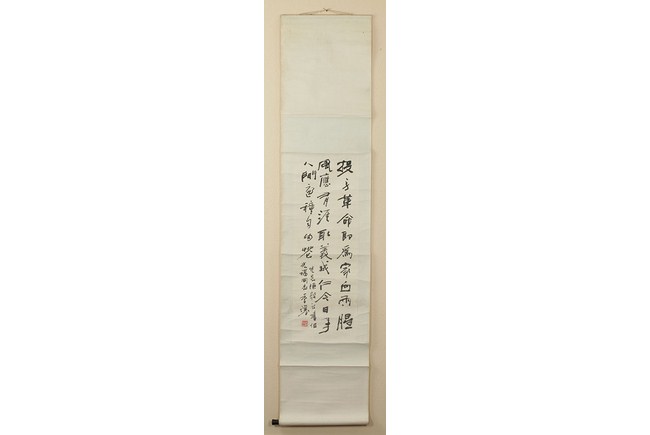 投身革命即為家血雨腥
風應有涯取義成仁今日事
人間遍種自由花